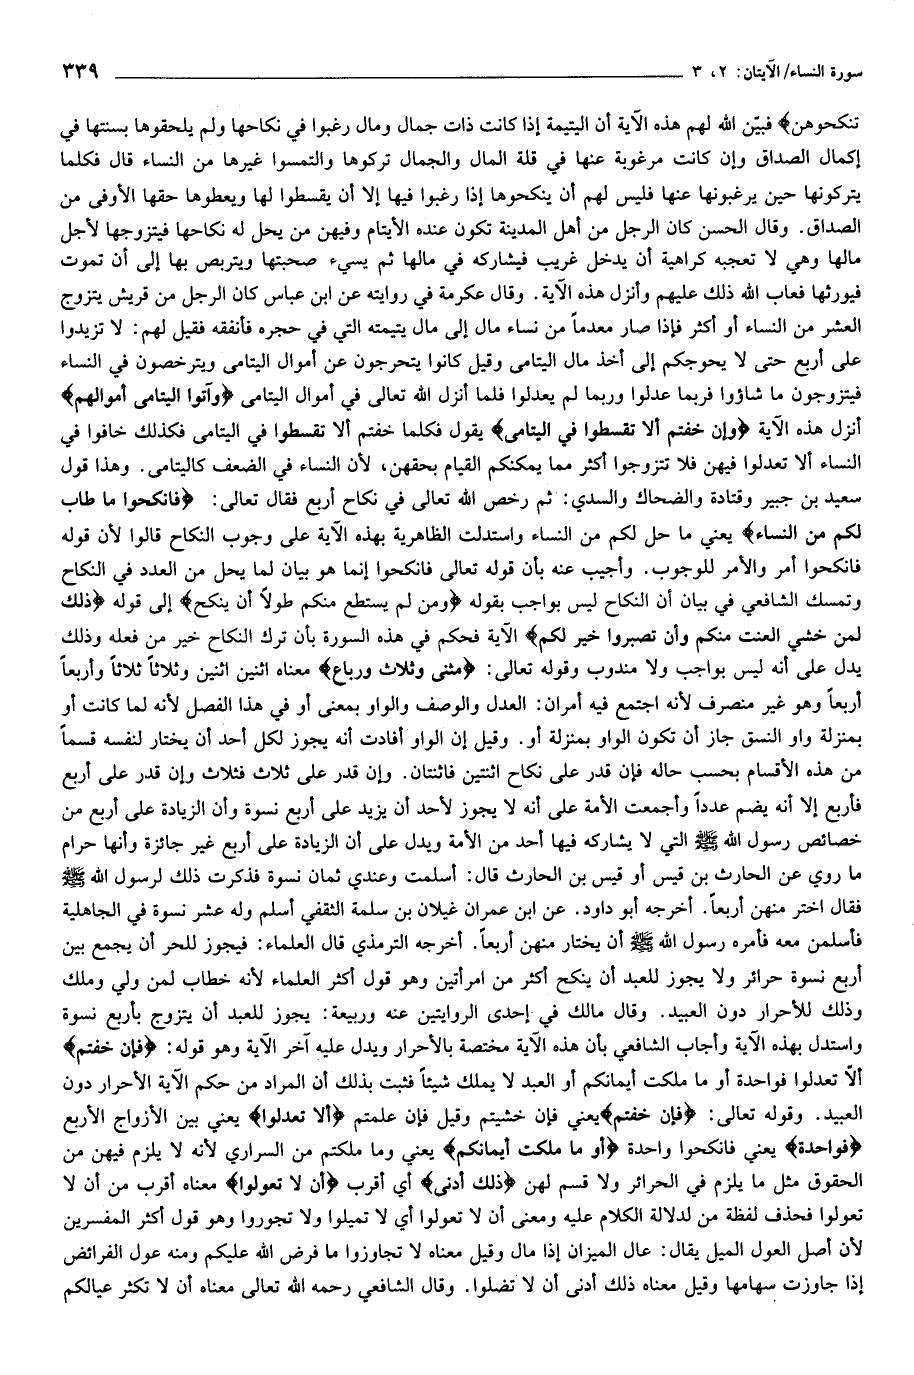 سورة النساء/ الآيتان: ٢، ٣ ٣٣٩
تنكحوهن﴾ فبيّن الله لهم هذه الآية أن اليتيمة إذا كانت ذات جمال ومال رغبوا في نكاحها ولم يلحقوها بسنتها في
إكمال الصداق وإن كانت مرغوبة عنها في قلة المال والجمال تركوها والتمسوا غيرها من النساء قال فكلما
يتركونها حين يرغبونها عنها فليس لهم أن ينكحوها إذا رغبوا فيها إلا أن يقسطوا لها ويعطوها حقها الأوفى من
الصداق. وقال الحسن كان الرجل من أهل المدينة تكون عنده الأيتام وفيهن من يحل له نكاحها فيتزوجها لأجل
مالها وهي لا تعجبه كراهية أن يدخل غريب فيشاركه في مالها ثم يسيء صحبتها ويتربص بها إلى أن تموت
فيورثها فعاب الله ذلك عليهم وأنزل هذه الآية. وقال عكرمة في روايته عن ابن عباس كان الرجل من قريش يتزوج
العشر من النساء أو أكثر فإذا صار معدماً من نساء مال إلى مال يتيمته التي في حجره فأنفقه فقيل لهم: لا تزيدوا
على أربع حتى لا يحوجكم إلى أخذ مال اليتامى وقيل كانوا يتحرجون عن أموال اليتامى ويترخصون في النساء
فيتزوجون ما شاؤوا فربما عدلوا وربما لم يعدلوا فلما أنزل الله تعالى في أموال اليتامى ﴿وآتوا اليتامى أموالهم﴾
أنزل هذه الآية ﴿وإن خفتم ألا تقسطوا في اليتامى﴾ يقول فكلما خفتم ألا تقسطوا في اليتامى فكذلك خافوا في
النساء ألا تعدلوا فيهن فلا تتزوجوا أكثر مما يمكنكم القيام بحقهن، لأن النساء في الضعف كاليتامى. وهذا قول
سعيد بن جبير وقتادة والضحاك والسدي: ثم رخص الله تعالى في نكاح أربع فقال تعالى: ﴿فانكحوا ما طاب
لكم من النساء﴾ يعني ما حل لكم من النساء واستدلت الظاهرية بهذه الآية على وجوب النكاح قالوا لأن قوله
فانكحوا أمر والأمر للوجوب. وأجيب عنه بأن قوله تعالى فانكحوا إنما هو بيان لما يحل من العدد في النكاح
وتمسك الشافعي في بيان أن النكاح ليس بواجب بقوله ﴿ومن لم يستطع منكم طولاً أن ينكح﴾ إلى قوله ﴿ذلك
لمن خشي العنت منكم وأن تصبروا خير لكم﴾ الآية فحكم في هذه السورة بأن ترك النكاح خير من فعله وذلك
يدل على أنه ليس بواجب ولا مندوب وقوله تعالى: ﴿مثنى وثلاث ورباع﴾ معناه اثنين اثنين وثلاثاً ثلاثاً وأربعاً
أربعاً وهو غير منصرف لأنه اجتمع فيه أمران: العدل والوصف والواو بمعنى أو في هذا الفصل لأنه لما كانت أو
بمنزلة واو النسق جاز أن تكون الواو بمنزلة أو. وقيل إن الواو أفادت أنه يجوز لكل أحد أن يختار لنفسه قسماً
من هذه الأقسام بحسب حاله فإن قدر على نكاح اثنتين فاثنتان. وإن قدر على ثلاث فثلاث وإن قدر على أربع
فأربع إلا أنه يضم عدداً وأجمعت الأمة على أنه لا يجوز لأحد أن يزيد على أربع نسوة وأن الزيادة على أربع من
خصائص رسول الله ﷺ التي لا يشاركه فيها أحد من الأمة ويدل على أن الزيادة على أربع غير جائزة وأنها حرام
ما روي عن الحارث بن قيس أو قيس بن الحارث قال: أسلمت وعندي ثمان نسوة فذكرت ذلك لرسول الله ﷺ
فقال اختر منهن أربعاً. أخرجه أبو داود. عن ابن عمران غيلان بن سلمة الثقفي أسلم وله عشر نسوة في الجاهلية
فأسلمن معه فأمره رسول الله ﷺ أن يختار منهن أربعاً. أخرجه الترمذي قال العلماء: فيجوز للحر أن يجمع بين
أربع نسوة حرائر ولا يجوز للعبد أن ينكح أكثر من امرأتين وهو قول أكثر العلماء لأنه خطاب لمن ولي وملك
وذلك للأحرار دون العبيد. وقال مالك في إحدى الروايتين عنه وربيعة: يجوز للعبد أن يتزوج بأربع نسوة
واستدل بهذه الآية وأجاب الشافعي بأن هذه الآية مختصة بالأحرار ويدل عليه آخر الآية وهو قوله: ﴿فإن خفتم﴾
ألاّ تعدلوا فواحدة أو ما ملكت أيمانكم أو العبد لا يملك شيئاً فثبت بذلك أن المراد من حكم الآية الأحرار دون
العبيد. وقوله تعالى: ﴿فإن خفتم﴾يعني فإن خشيتم وقيل فإن علمتم ﴿ألا تعدلوا﴾ يعني بين الأزواج الأربع
﴿فواحدة﴾ يعني فانكحوا واحدة ﴿أو ما ملكت أيمانكم﴾ يعني وما ملكتم من السراري لأنه لا يلزم فيهن من
الحقوق مثل ما يلزم في الحرائر ولا قسم لهن ﴿ذلك أدنى﴾ أي أقرب ﴿أن لا تعولوا﴾ معناه أقرب من أن لا
تعولوا فحذف لفظة من لدلالة الكلام عليه ومعنى أن لا تعولوا أي لا تميلوا ولا تجوروا وهو قول أكثر المفسرين
لأن أصل العول الميل يقال: عال الميزان إذا مال وقيل معناه لا تجاوزوا ما فرض الله عليكم ومنه عول الفرائض
إذا جاوزت سهامها وقيل معناه ذلك أدنى أن لا تضلوا. وقال الشافعي رحمه الله تعالى معناه أن لا تكثر عيالكم